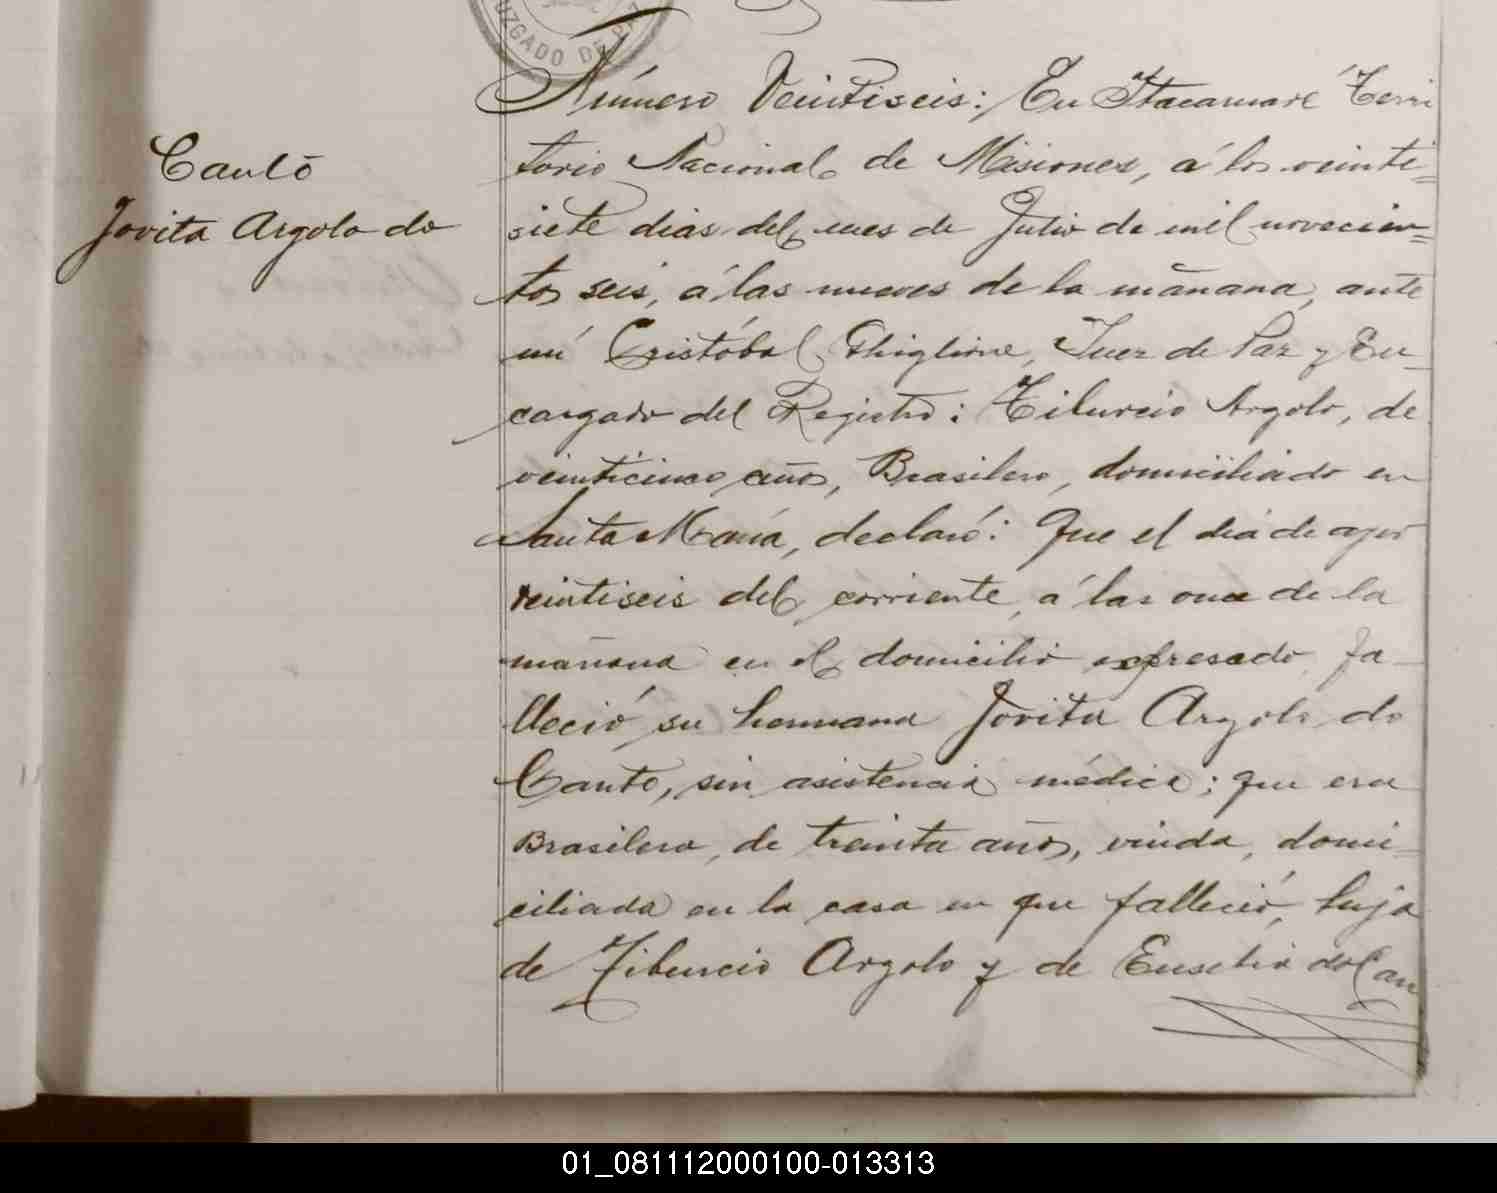 JUZGADO DE
Número Veintiseis: En Itacaruaré Terri
torio Nacional de Misiones, á los veinti=
siete dias del mes de Julio de mil novecien=
tos seis, á las nueves de la mañana, ante
mi Cristóbal Ghiglione, Juez de Paz y En-
cargado del Registro: Tiburcio Argolo, de
veinticinco años, Brasilero, domiciliado en
Santa María, declaró: Que el dia de ayer
veintiseis del corriente, á las once de la
mañana en el domicilio expresado, fa-
lleció su hermana Jovita Argolo do
Canto, sin asistencia médica; que era
Brasilera, de treinta años, viuda, domi-
ciliada en la casa en que falleció, hija
de Tiburcio Argolo y de Eusebia do Can
Canto
Jovita Argolo do
01_081112000100-013313